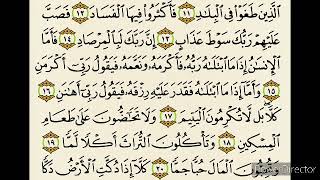 ٱلَّذِينَ طَغَوْا۟ فِى ٱلْبِلَٰدِ ١١ فَأَكْثَرُوا۟ فِيهَا ٱلْفَسَادَ ١٢ فَصَبَّ
عَلَيْهِمْ رَبُّكَ سَوْطَ عَذَابٍ ١٣ إِنَّ رَبَّكَ لَبِٱلْمِرْصَادِ ١٤ فَأَمَّا
ٱلْإِنسَٰنُ إِذَا مَا ٱبْتَلَىٰهُ رَبُّهُۥ فَأَكْرَمَهُۥ وَنَعَّمَهُۥ فَيَقُولُ رَبِّىٓ أَكْرَمَنِ
١٥ وَأَمَّآ إِذَا مَا ٱبْتَلَىٰهُ فَقَدَرَ عَلَيْهِ رِزْقَهُۥ فَيَقُولُ رَبِّىٓ أَهَٰنَنِ ١٦
كَلَّا بَل لَّا تُكْرِمُونَ ٱلْيَتِيمَ ١٧ وَلَا تَحَٰٓضُّونَ عَلَىٰ طَعَامِ
ٱلْمِسْكِينِ ١٨ وَتَأْكُلُونَ ٱلتُّرَاثَ أَكْلًا لَّمًّا ١٩
وَتُحِبُّونَ ٱلْمَالَ حُبًّا جَمًّا ٢٠ كَلَّآ إِذَا دُكَّتِ ٱلْأَرْضُ دَكًّا